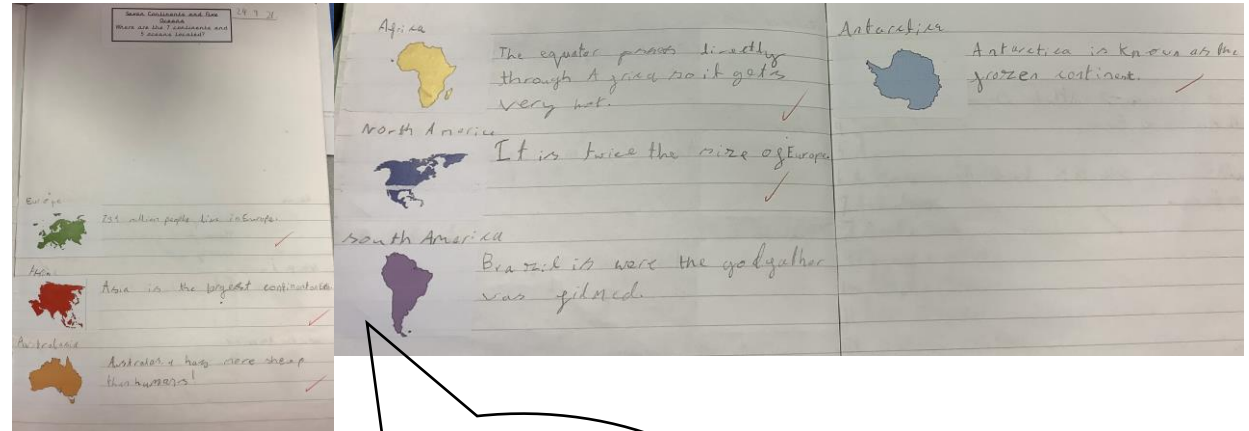 Seven Continents and Five
Oceans
Where are the 7 continents and
5 oceans located?
Europe
million people live in Europe.
Asia
Asia is the largest continent
Australasia
has more sheep
than humans!
Africa
The equator passes directly
through Africa so it gets
very hot.
North America
It is twice the size of Europe
South America
Brazil is were the godfather
was filmed.
Antarctica
Antarctica is known as the
frozen continent.